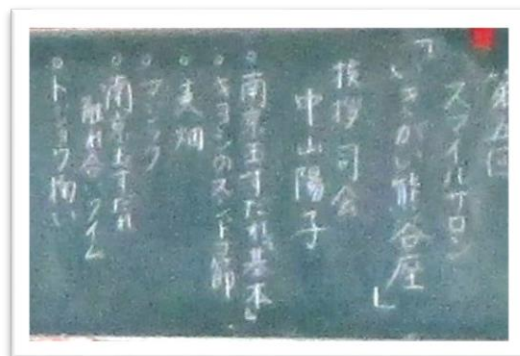 第五回
スマイルサロン
「いきがい熊谷座」
挨拶 司会
中山陽子
南京玉すだれ基本
。キヨシのズンドコ節
。美畑
。マジック
。南京玉すだれ
触れ合いタイム
。トショウ揃い